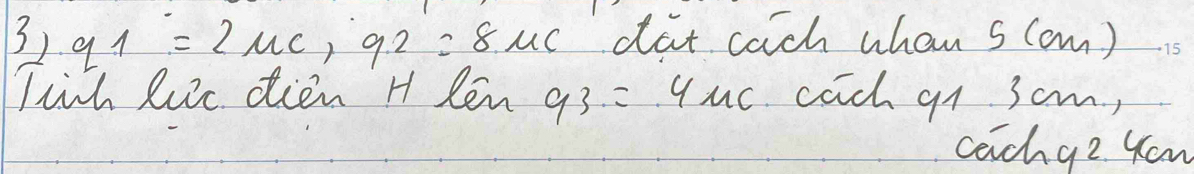 3) q1 = 2 μc, q2 = 8 μc đặt cách nhau 5 (cm)
Tính lực điện H lên q3 = 4 μc cách q1 3cm,
cách q2 4cm